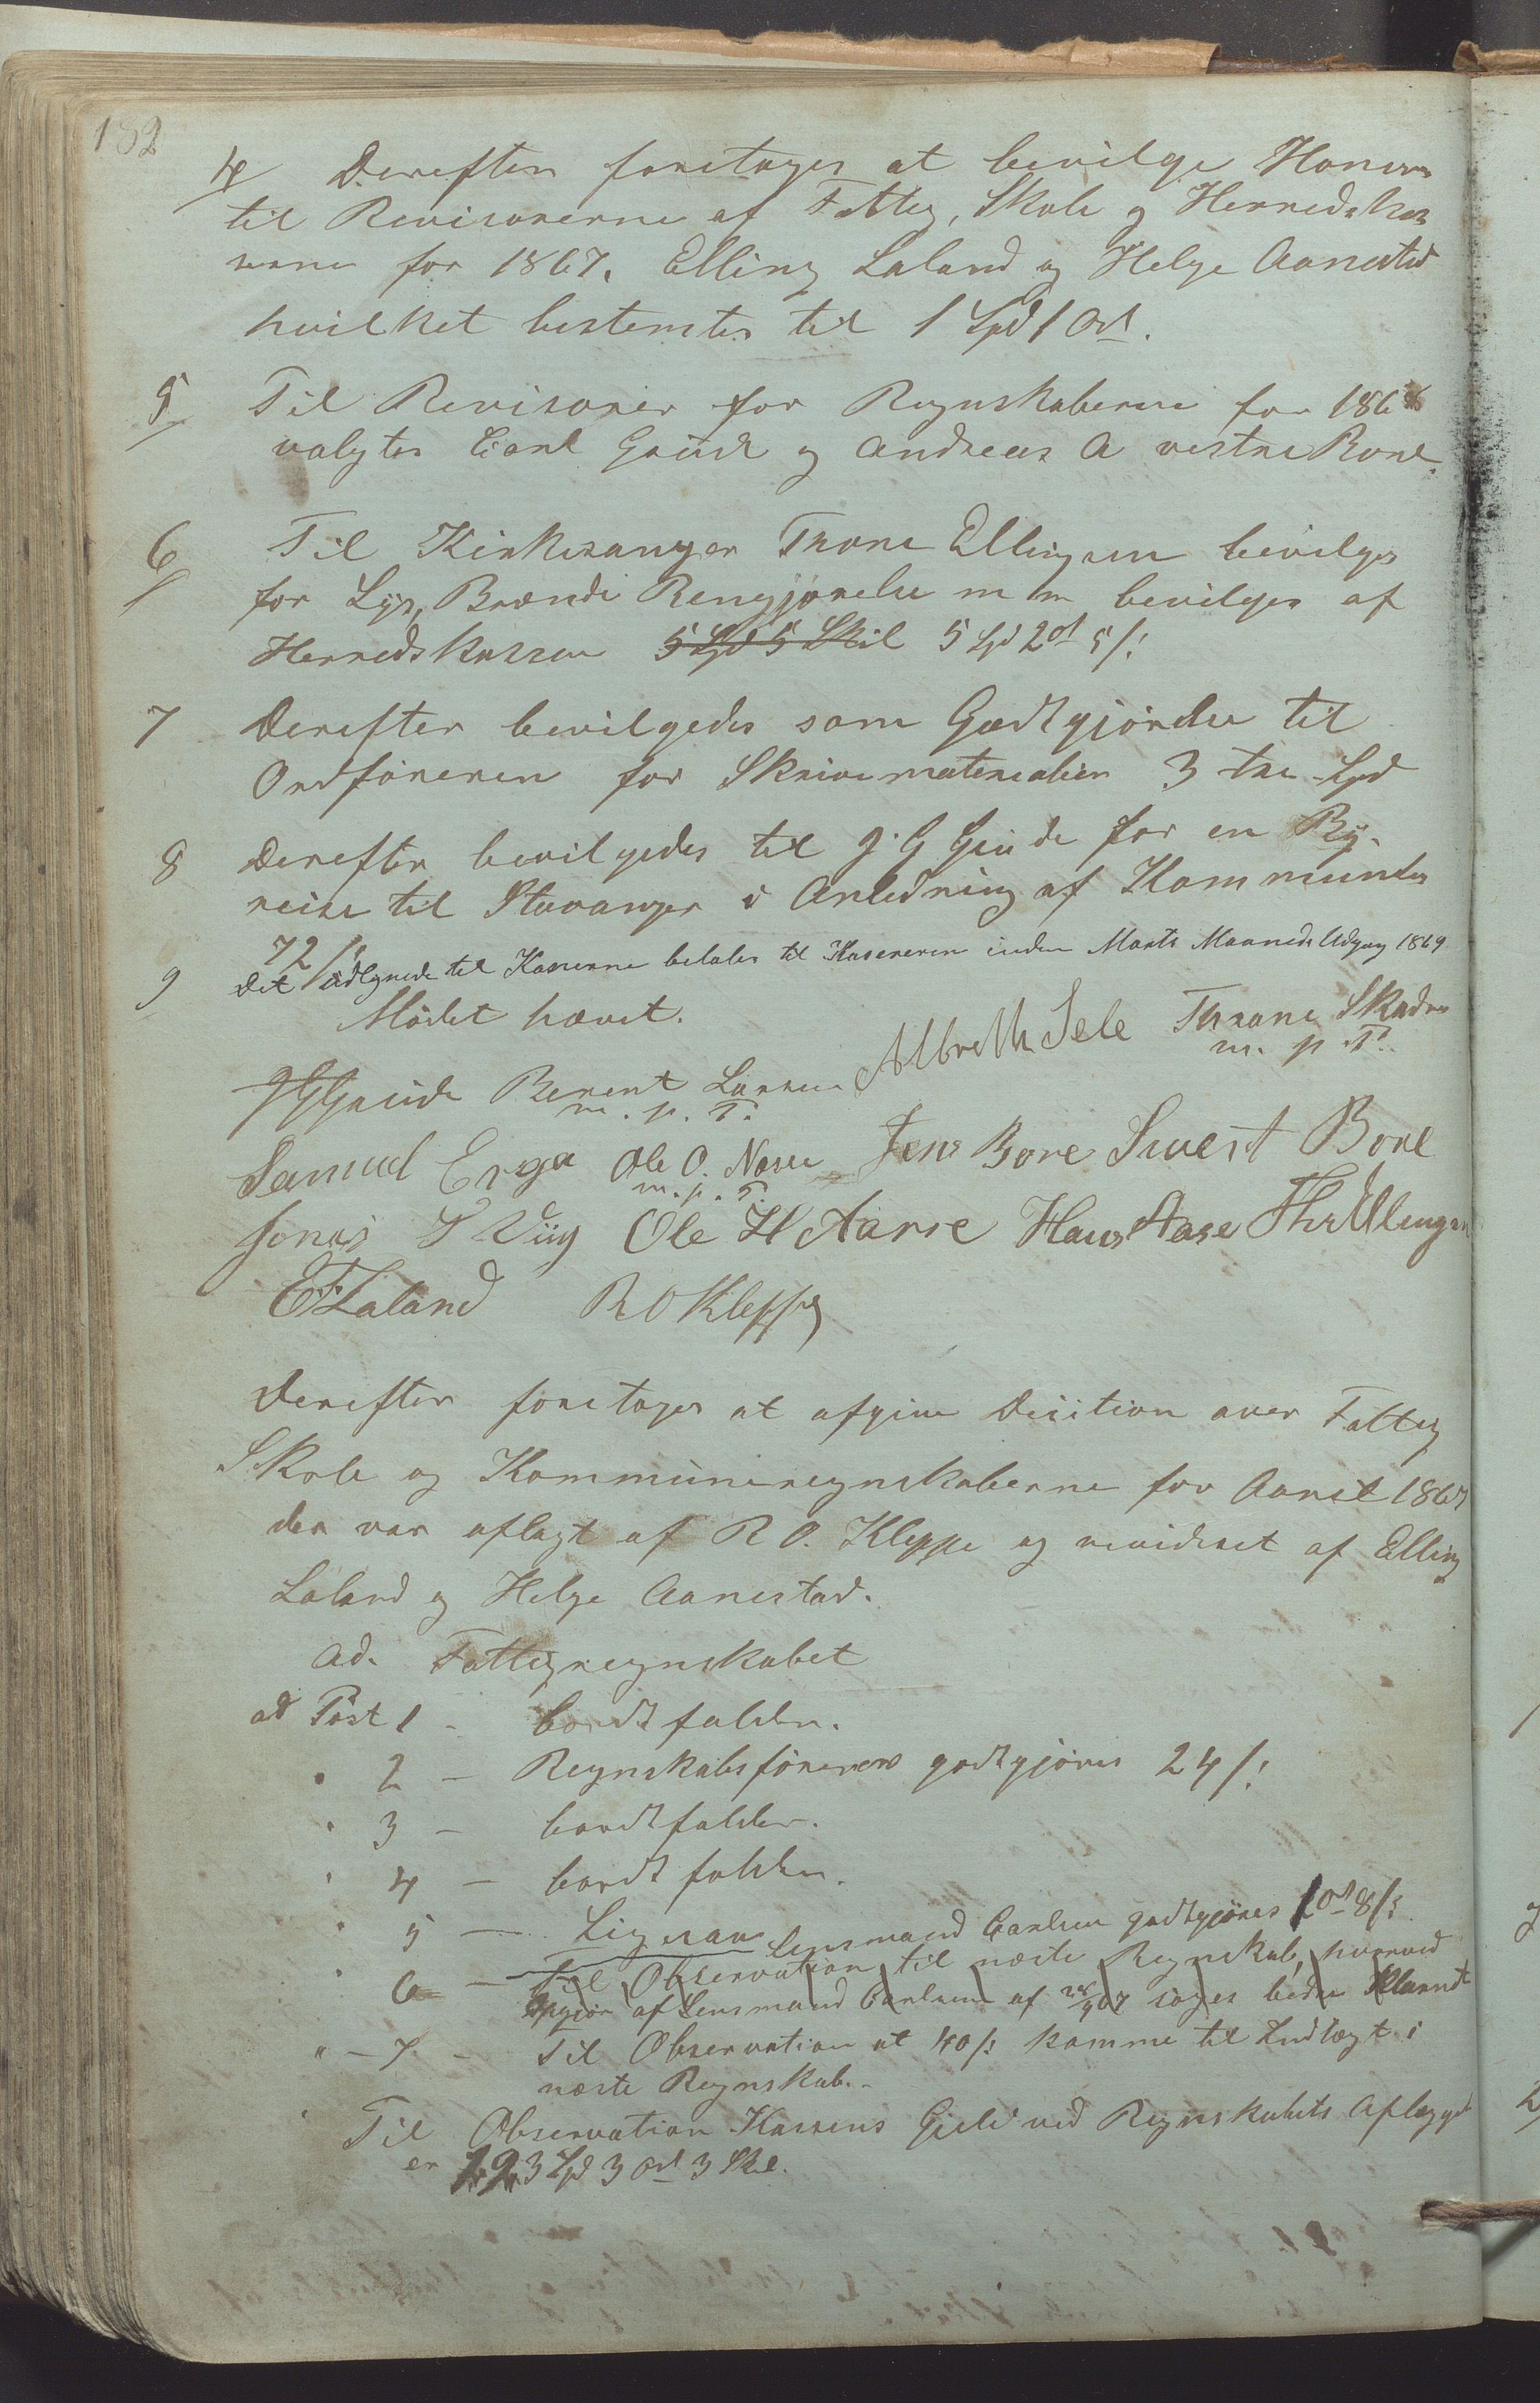 182
4/ Derefter foretages at bevilge Honorar
til Revisorerne af Fattig, Skole og Herredskas
serne for 1867, Elling Laland og Helge Aanestad
hvilket bestemtes til 1 Spd 1 Ort.
5/ Til Revisorer for Regnskaberne for 1868
valgtes Carl Grude og Andreas A vestre Bore.
6/ Til Kirkesanger Thore Ellingsen bevilges
for Lys, Brænde Rengjørelse m m bevilges af
Herredskassen 5 Spd 5 Skil 5 Spd 2 ort 5 /:
7 Derefter bevilgedes som Godtgjørelse til
Ordføreren for Skrivematerialier 3 tre Spd
8 Derefter bevilgedes til J. G Grude for en By-
reise til Stavanger i Anledning af Kommunens
72 /:
9 Det udlignede til Kasserne betales til Kassereren inden Marts Maaneds Udgang 1869
Mødet hævet.
JGGrude Berent Larsen Albreth Sele Thrane Skadsem
m. p. P. m. p. P.
Samuel Erga Ole O. Næsse Jens Bore Sivert Bore
m. p. P.
Jonas S Viig Ole H Aarse Hans Aase ThEllingsen
E F Laland R O Kleppe
Derefter foretages at afgive Desition over Fattig
Skole og Kommuneregnskaberne for Aaret 1867
der var aflagt af R O. Kleppe og revideret af Elling
Laland og Helge Aanestad.
Ad. Fattigregnskabet
ad Post 1 - bortfalder.
" 2 - Regnskabsføreren godtgjøres 24 /:
" 3 - bortfalder.
" 4 - bortfalder.
" 5 - Ligesaa Lensmand Carlsen godtgjøres 1 ort 8 /:
" 6 - Til Observation til næste Regnskab, hvorved
Opgjør af Lensmand Carlsen af 28/9 67 søges bedre klaret
" - 7 - Til Observation at 40 /: komme til Indtægt i
næste Regnskab.-
Til Observation Kassens Gjeld ved Regnskabets Aflæggelse
er 123 Spd 3 Ort 3 Skil.